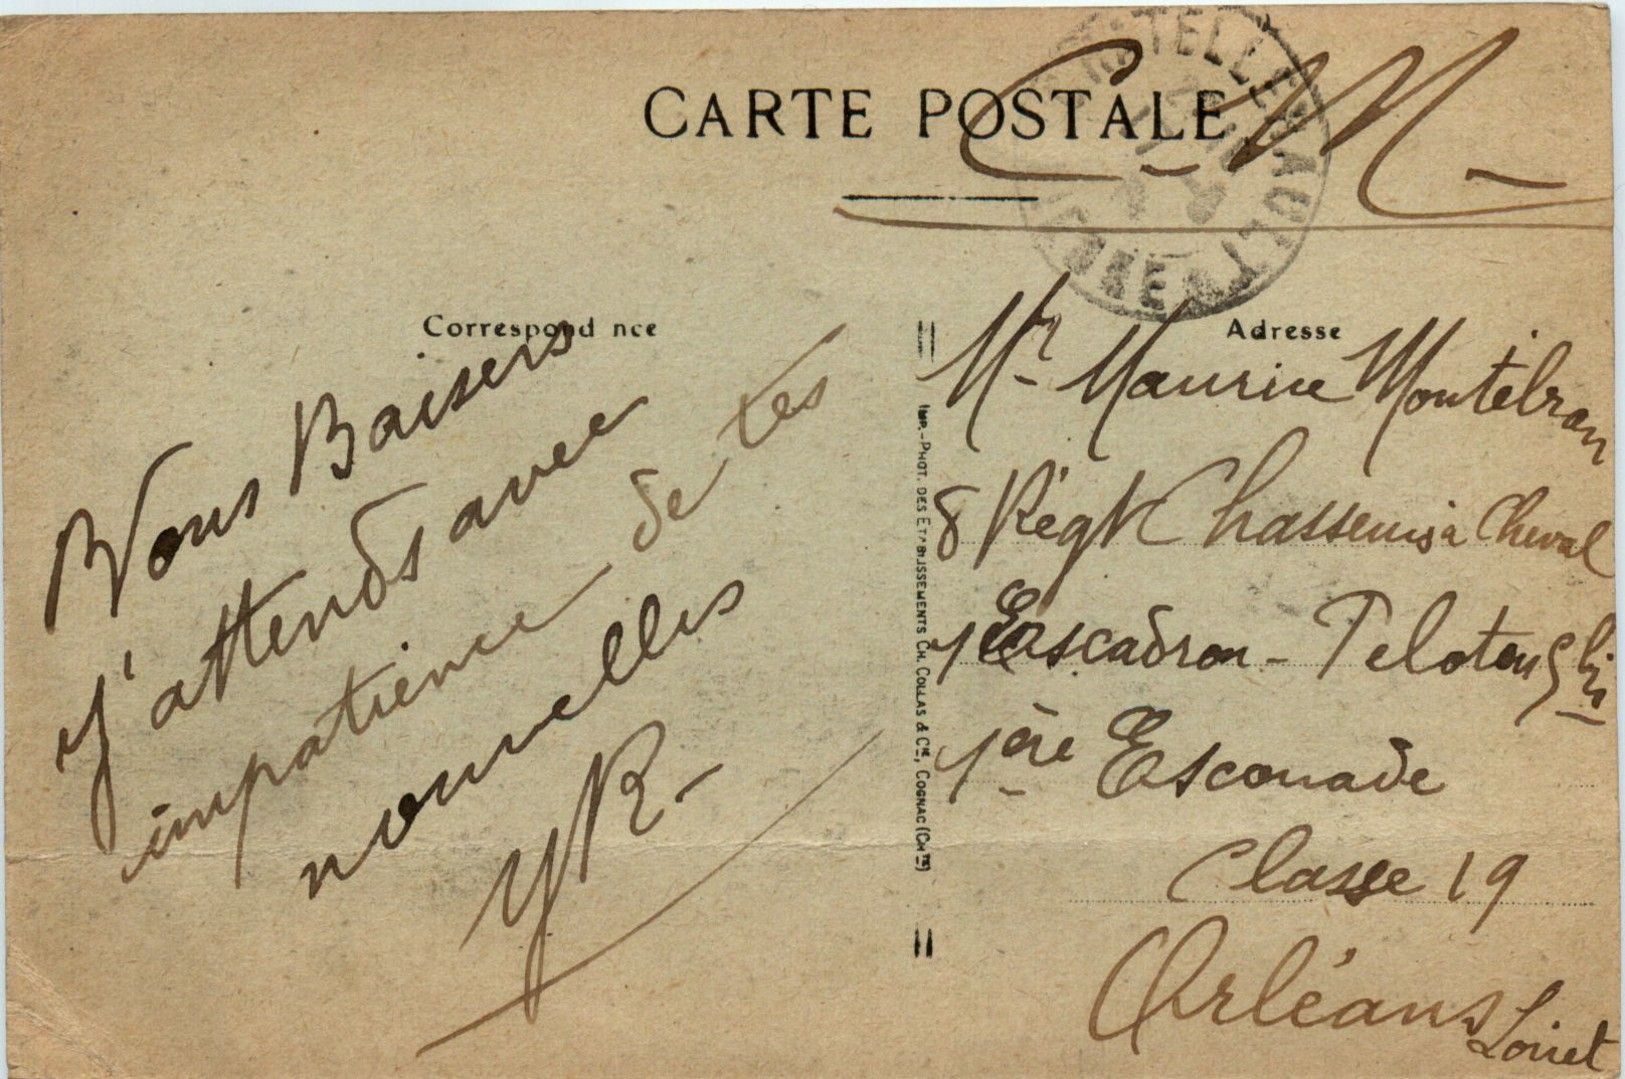 CARTE POSTALE
C. M -
CHATELLERAULT
VIENNE
Correspond nce
Adresse
Nous Baisers
j'attends avec
impatience de tes
nouvelles
YR -
IMP.-PHOT. DES ETABLISSEMENTS CH. COLLAS & CIE, COGNAC (CHTE)
Mr Maurice Montébran
8 Régt Chasseurs à Cheval
1er Escadron - Peloton
1ère Escouade
Classe 19
Orléans
Loiret